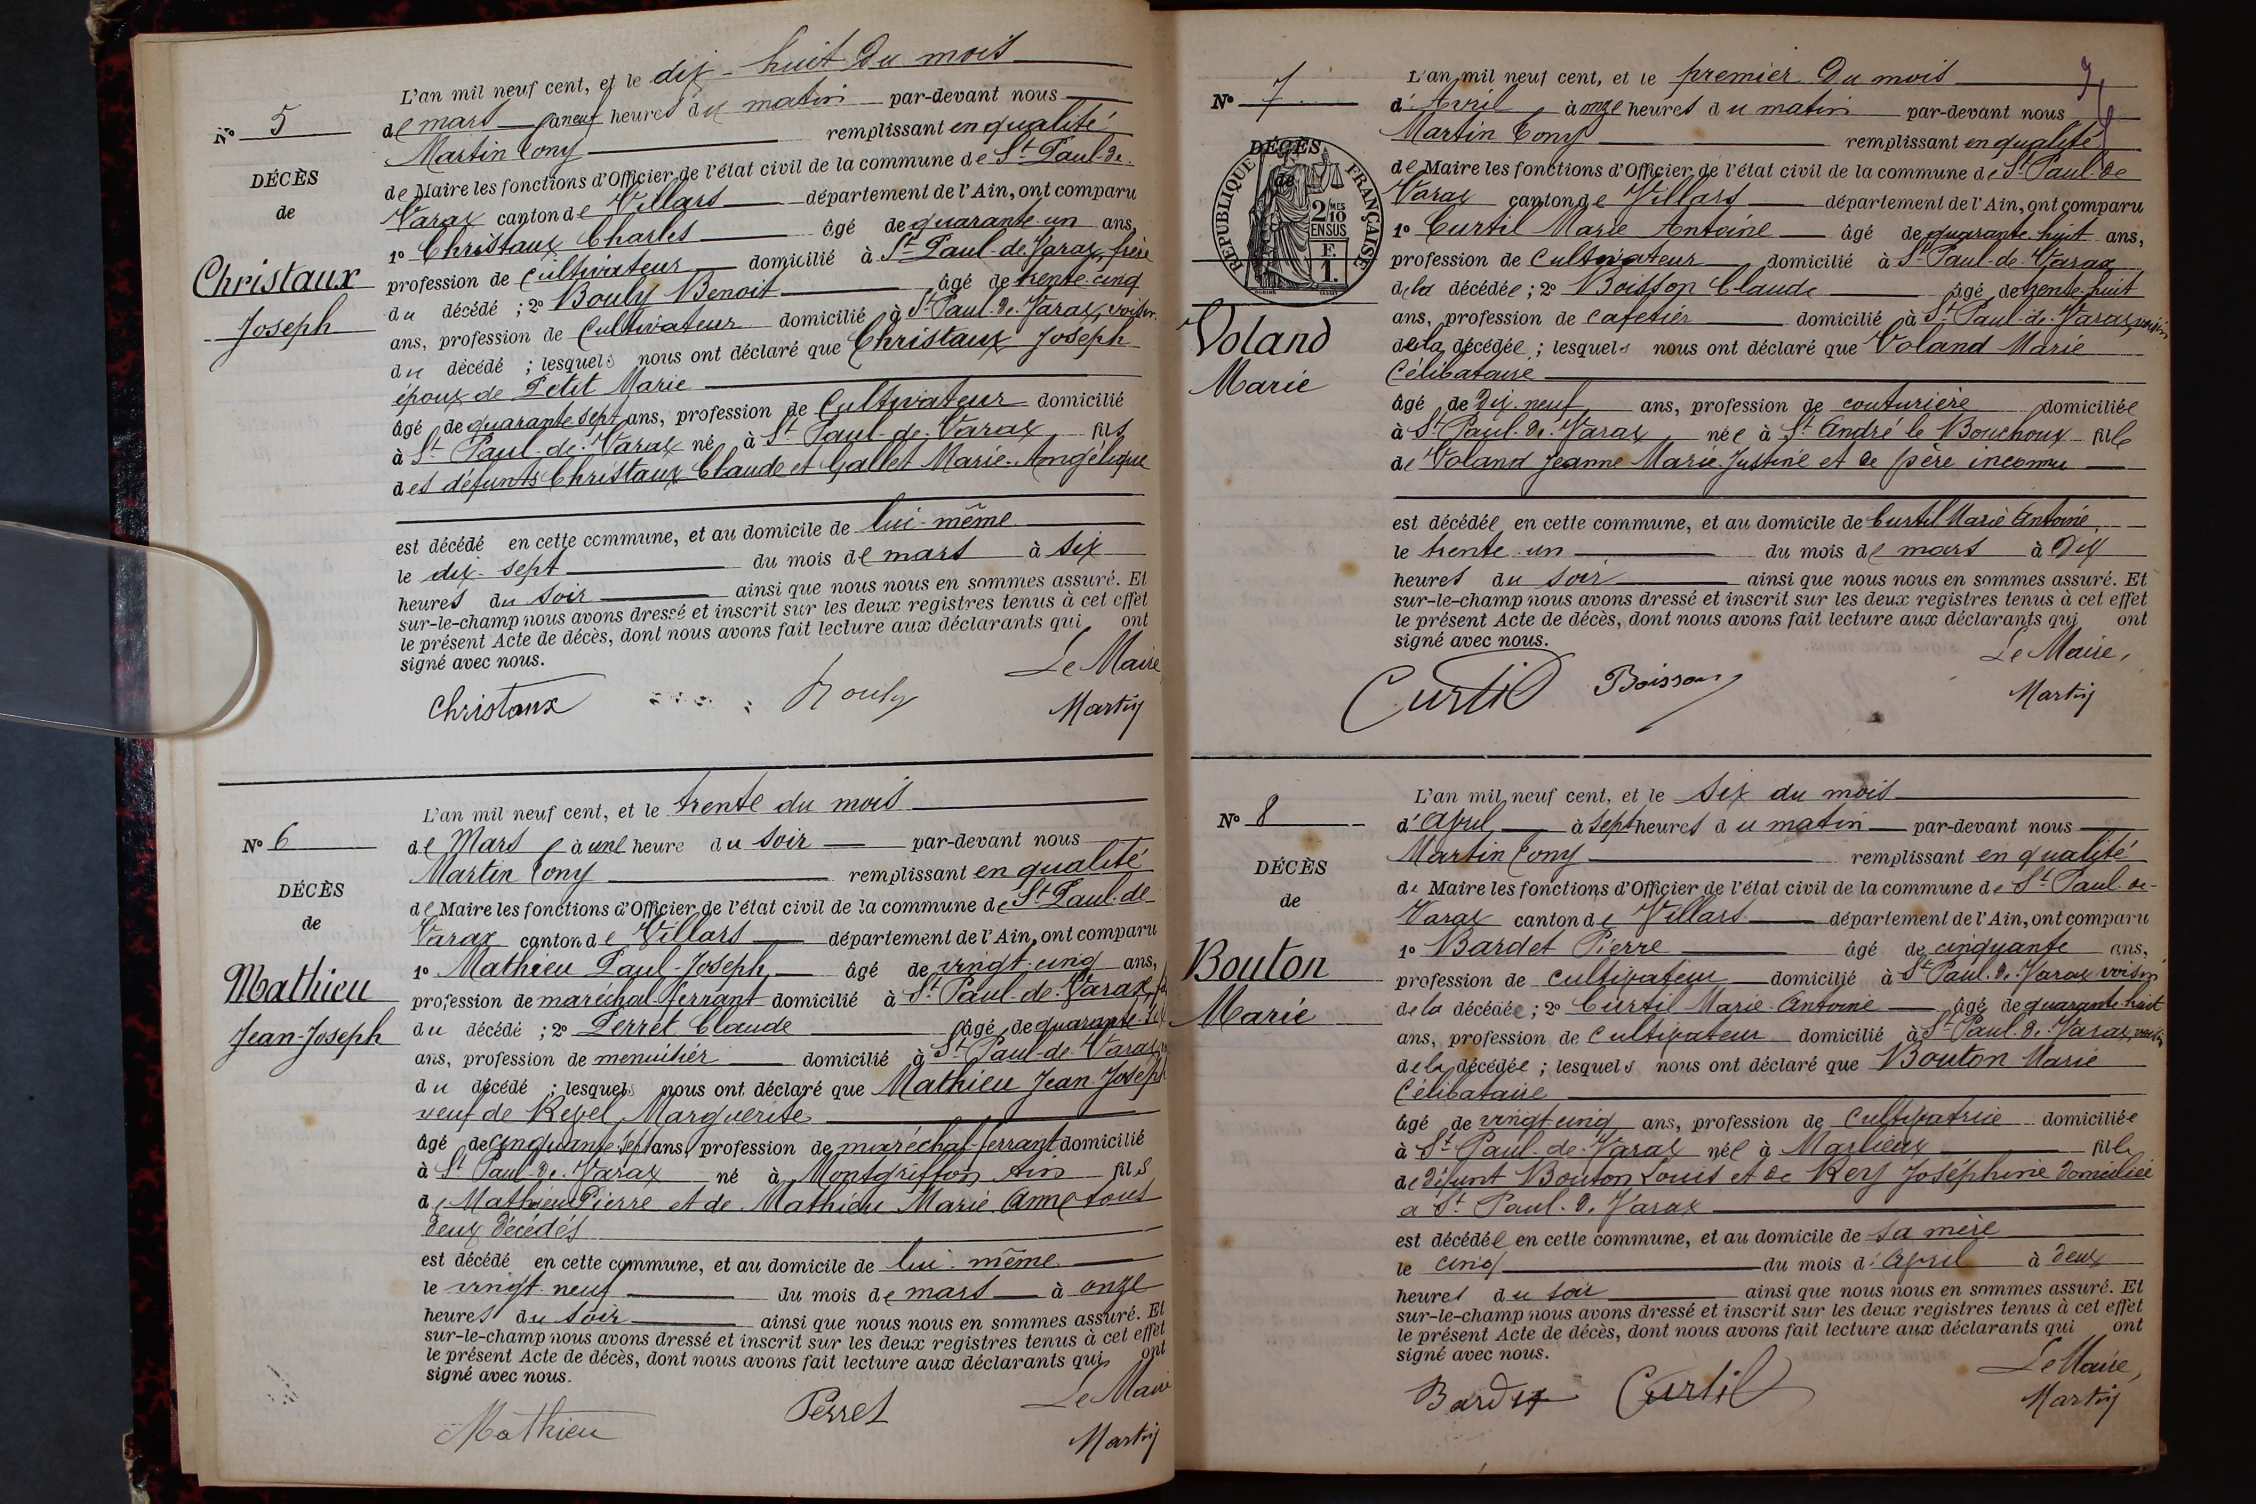 L'an mil neuf cent, et le dix-huit du mois
N° 5
de mars à neuf heures du matin par-devant nous
Martin Tony remplissant en qualité
DÉCÈS
de Maire les fonctions d'Officier de l'état civil de la commune de St Paul-de-
de
Varax canton de Villars département de l'Ain, ont comparu
1° Christaux Charles âgé de quarante-un ans,
Christaux
profession de cultivateur domicilié à St Paul-de-Varax, frère
Joseph
du décédé ; 2° Bouly Benoit âgé de trente-cinq
ans, profession de Cultivateur domicilié à St Paul-de-Varax, voisin
du décédé ; lesquels nous ont déclaré que Christaux Joseph
époux de Petit Marie
âgé de quarante sept ans, profession de Cultivateur domicilié
à St Paul-de-Varax né à St Paul-de-Varax fils
des défunts Christaux Claude et Gallet Marie-Angélique
est décédé en cette commune, et au domicile de lui-même
le dix-sept du mois de mars à six
heures du soir ainsi que nous nous en sommes assuré. Et
sur-le-champ nous avons dressé et inscrit sur les deux registres tenus à cet effet
le présent Acte de décès, dont nous avons fait lecture aux déclarants qui ont
signé avec nous.
Le Maire
Christaux Bouly Martin
L'an mil neuf cent, et le trente du mois
N° 6
de Mars à une heure du soir par-devant nous
Martin Tony remplissant en qualité
DÉCÈS
de Maire les fonctions d'Officier de l'état civil de la commune de St Paul-de-
de
Varax canton de Villars département de l'Ain, ont comparu
1° Mathieu Paul-Joseph âgé de vingt-cinq ans,
Mathieu
profession de maréchal-ferrant domicilié à St Paul-de-Varax,
Jean-Joseph
du décédé ; 2° Perret Claude âgé de quarante-
ans, profession de menuisier domicilié à St Paul-de-Varax
du décédé ; lesquels nous ont déclaré que Mathieu Jean Joseph
veuf de Revel Marguerite
âgé de cinquante-sept ans, profession de maréchal-ferrant domicilié
à St Paul-de-Varax né à Montgriffon Ain fils
de Mathieu Pierre et de Mathieu Marie Anne tous
deux décédés
est décédé en cette commune, et au domicile de lui-même
le vingt-neuf du mois de mars à onze
heures du soir ainsi que nous nous en sommes assuré. Et
sur-le-champ nous avons dressé et inscrit sur les deux registres tenus à cet effet
le présent Acte de décès, dont nous avons fait lecture aux déclarants qui ont
signé avec nous.
Le Maire
Mathieu Perret Martin
L'an mil neuf cent, et le premier du mois
N° 7
d'Avril à onze heures du matin par-devant nous
Martin Tony remplissant en qualité
DÉCÈS
de
RÉPUBLIQUE FRANÇAISE
2/10 MES EN SUS
F. 1.
de Maire les fonctions d'Officier de l'état civil de la commune de St Paul-de
Varax canton de Villars département de l'Ain, ont comparu
1° Curtil Marie Antoine âgé de quarante-huit ans,
profession de Cultivateur domicilié à St Paul-de-Varax
de la décédée ; 2° Boisson Claude âgé de trente-huit
ans, profession de cafetier domicilié à St Paul-de-Varax, voisin
Voland
Marie
de la décédée ; lesquels nous ont déclaré que Voland Marie
Célibataire
âgé de dix-neuf ans, profession de couturière domiciliée
à St Paul-de-Varax née à St André le Bouchoux fille
de Voland Jeanne Marie Justine et de père inconnu
est décédée en cette commune, et au domicile de Curtil Marie Antoine
le trente-un du mois de mars à dix
heures du soir ainsi que nous nous en sommes assuré. Et
sur-le-champ nous avons dressé et inscrit sur les deux registres tenus à cet effet
le présent Acte de décès, dont nous avons fait lecture aux déclarants qui ont
signé avec nous.
Le Maire,
Curtil Boisson Martin
L'an mil neuf cent, et le six du mois
N° 8
d'avril à sept heures du matin par-devant nous
Martin Tony remplissant en qualité
DÉCÈS
de Maire les fonctions d'Officier de l'état civil de la commune de St Paul-de-
de
Varax canton de Villars département de l'Ain, ont comparu
1° Bardet Pierre âgé de cinquante ans,
Bouton
profession de cultivateur domicilié à St Paul-de-Varax voisin
Marie
de la décédée ; 2° Curtil Marie-Antoine âgé de quarante-huit
ans, profession de Cultivateur domicilié à St Paul-de-Varax, voisin
de la décédée ; lesquels nous ont déclaré que Bouton Marie
Célibataire
âgé de vingt-cinq ans, profession de Cultivatrice domiciliée
à St Paul-de-Varax née à Marlieux fille
de défunt Bouton Louis et de Rey Joséphine domiciliée
à St Paul-de-Varax
est décédée en cette commune, et au domicile de sa mère
le cinq du mois d'avril à deux
heures du soir ainsi que nous nous en sommes assuré. Et
sur-le-champ nous avons dressé et inscrit sur les deux registres tenus à cet effet
le présent Acte de décès, dont nous avons fait lecture aux déclarants qui ont
signé avec nous.
Le Maire,
Bardet Curtil Martin